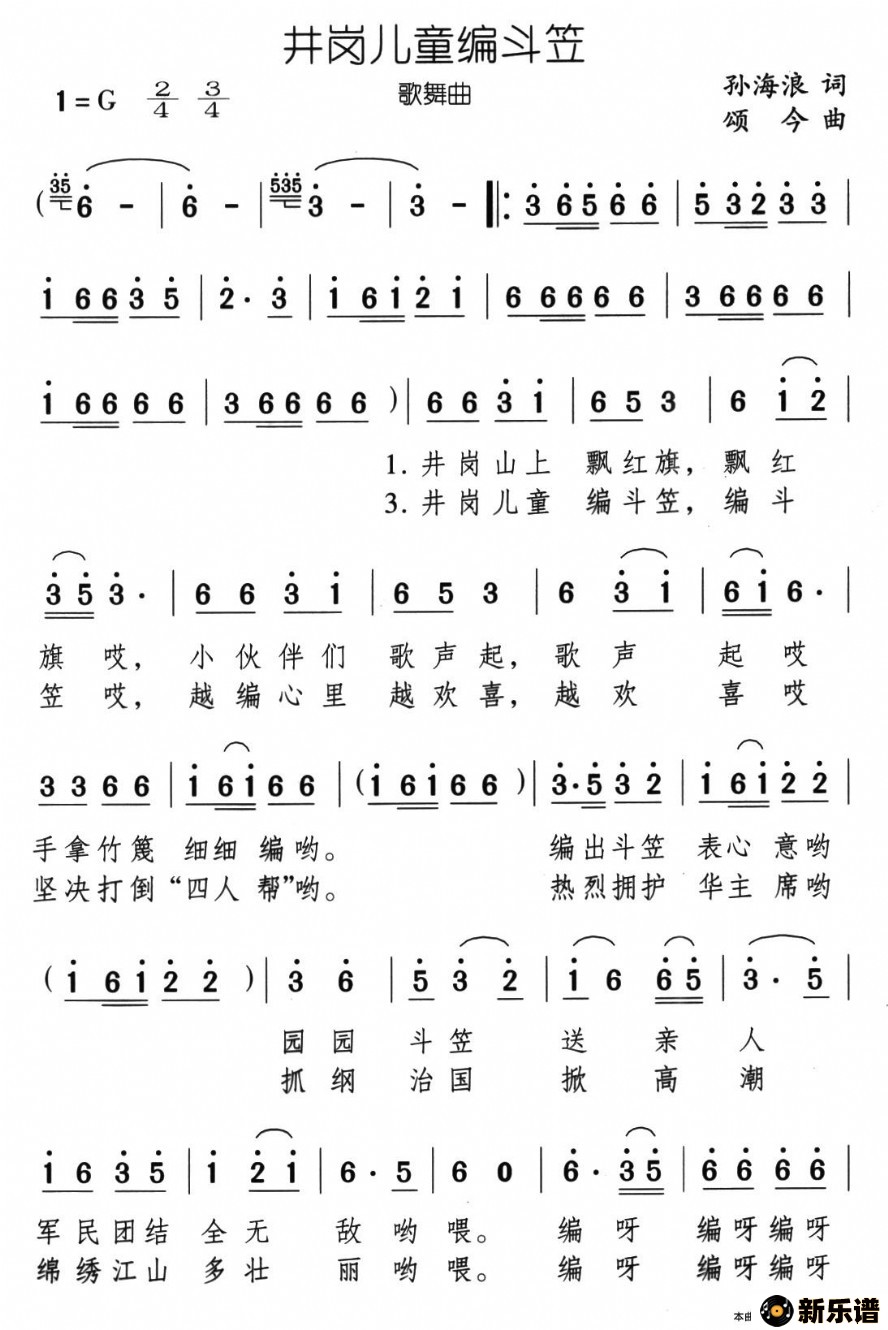 井岗儿童编斗笠
1=G 2/4 3/4
歌舞曲
孙海浪 词
颂今曲
( 35 6 - | 6 - | 535 3 - | 3 - ‖: 3 6 5 6 6 | 5 3 2 3 3 |
1 6 6 3 5 | 2 · 3 | 1 6 1 2 1 | 6 6 6 6 6 | 3 6 6 6 6 |
1 6 6 6 6 | 3 6 6 6 6 ) | 6 6 3 1 | 6 5 3 | 6 1 2
1. 井岗山上 飘红旗，飘红
3. 井岗儿童 编斗笠，编斗
3 5 3 · | 6 6 3 1 | 6 5 3 | 6 3 1 | 6 1 6 · |
旗哎，小伙伴们 歌声起，歌声 起哎
笠哎，越编心里 越欢喜，越欢 喜哎
3 3 6 6 | 1 6 1 6 6 | ( 1 6 1 6 6 ) | 3 · 5 3 2 | 1 6 1 2 2 |
手拿竹篾 细细 编哟。 编出斗笠 表心 意哟
坚决打倒“四人 帮”哟。 热烈拥护 华主 席哟
( 1 6 1 2 2 ) | 3 6 | 5 3 2 | 1 6 6 5 | 3 · 5 |
园园 斗笠 送亲人
抓纲 治国 掀高潮
1 6 3 5 | 1 2 1 | 6 · 5 | 6 0 | 6 · 3 5 | 6 6 6 6 |
军民团结 全无 敌哟喂。 编呀 编呀编呀
绵绣江山 多壮 丽哟喂。 编呀 编呀编呀
本曲
新乐谱